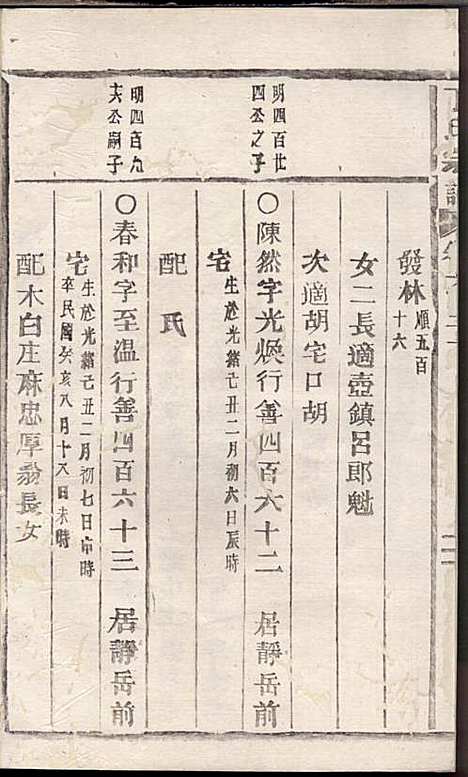 發林順五百
十六
女二長適壺鎮呂郎魁
次適胡宅口胡
明四百廿
四公之子
○陳然字光煥行善四百六十二 居靜岳前
宅生於光緒己丑二月初六日辰時
配 氏
明四百九
夫公嗣子
○春和字至溫行善四百六十三 居靜岳前
宅生於光緒己丑二月初七日市時
卒民國癸亥八月十八日未時
配木白庄麻忠厚翁長女